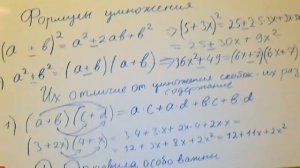 Формулы умножения
(a ± в)² = a² ± 2aв + в² ⇒ (5 + 3x)² = 25 + 2·5·3x + 3x
= 25 + 30x + 9x²
) a² ± в² = (a ± в)(a + в) ⇒ 36x² + 49 = (6x + 7)(6x + 7)
Их отличие от умножения скобок - их раз
содержание
1) (a + в)(c + d) = a·c + a·d + в·c + в·d
(3 + 2x)(4 + x) = 3·4 + 3·x + 2x·4 + 2x·x =
= 12 + 3x + 8x + 2x² = 12 + 11x + 2x²
особо важны